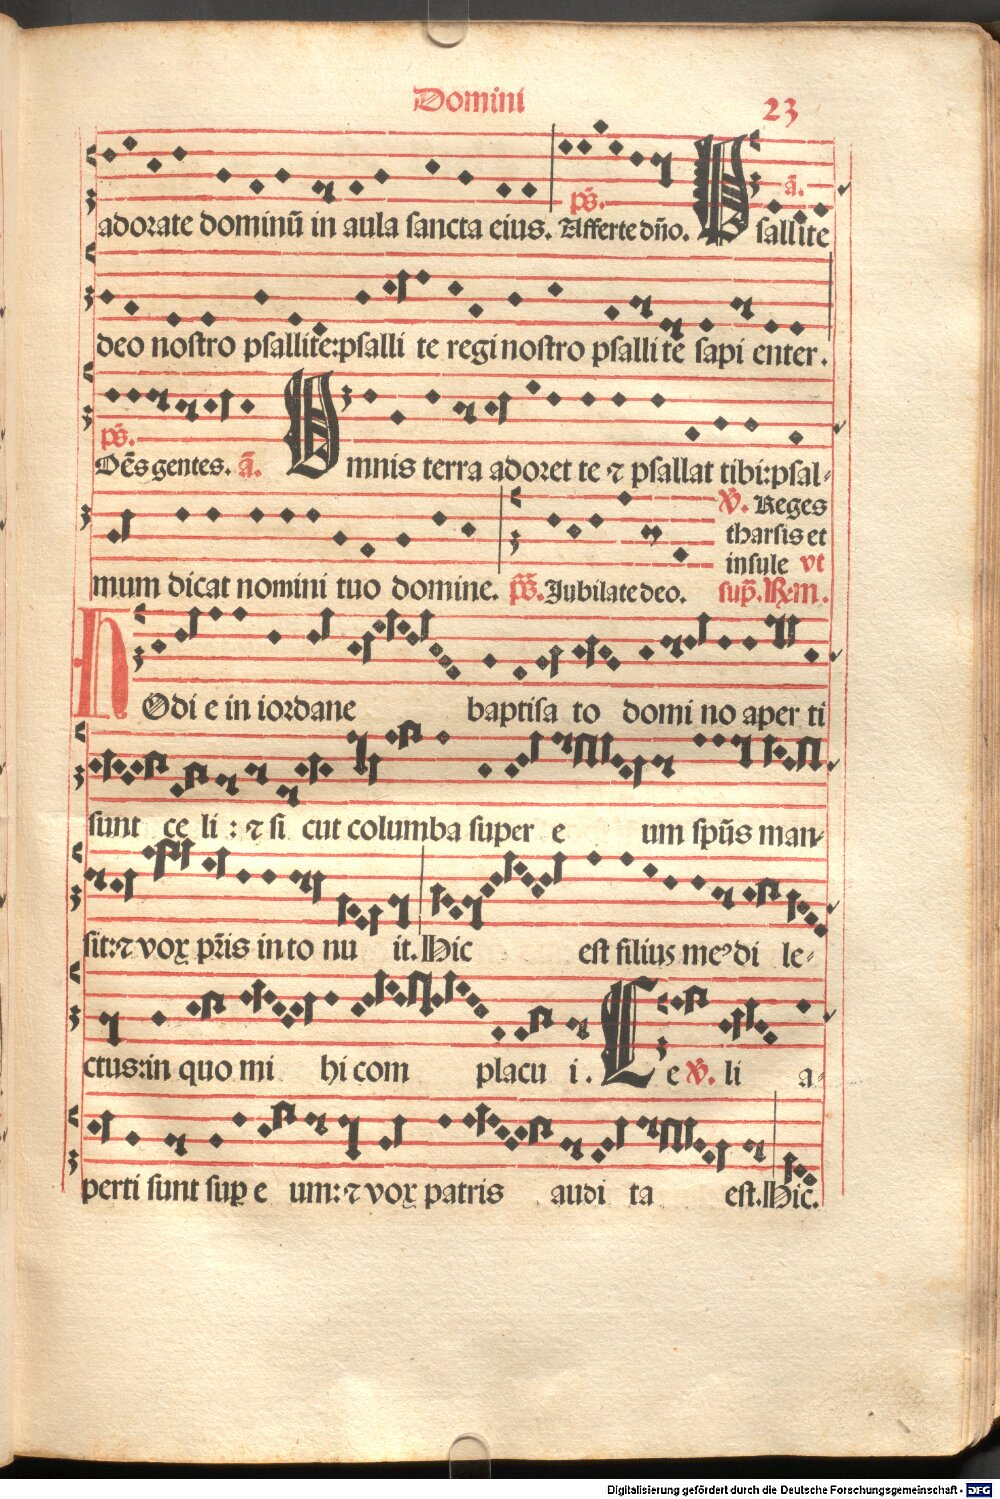 Domini 23
adorate dominū in aula sancta eius. ps̄. Afferte dn̄o. ā. Psallite
deo nostro psallite: psalli te regi nostro psalli te sapi enter.
ps̄. Oēs gentes. ā. Omnis terra adoret te ⁊ psallat tibi: psal-
mum dicat nomini tuo domine. ps̄. Jubilate deo. v̄. Reges
tharsis et
insule vt
sup̄. Rm̄.
HOdi e in iordane baptisa to domi no aper ti
sunt ce li : ⁊ si cut columba super e um spūs man-
sit: ⁊ vox pr̄is in to nu it. Hic est filius meꝰ di le-
ctus: in quo mi hi com placu i. Ce v̄. li a-
perti sunt suꝑ e um: ⁊ vox patris audi ta est. Hic.
Digitalisierung gefördert durch die Deutsche Forschungsgemeinschaft - DFG